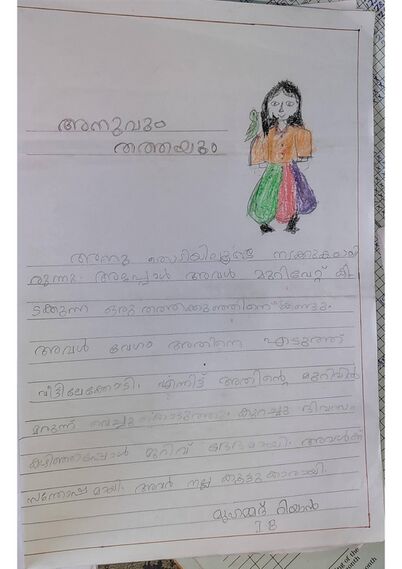 അനുവും
തത്തയും
അനു തൊടിയിലൂടെ നടക്കുകയായി
രുന്നു. അപ്പോൾ അവൾ മുറിവേറ്റ് കി
ടക്കുന്ന ഒരു തത്തക്കുഞ്ഞിനെ കണ്ടു.
അവൾ വേഗം അതിനെ എടുത്ത്
വീട്ടിലേക്കോടി. എന്നിട്ട് അതിന്റെ മുറിവിൽ
മരുന്ന് വെച്ചു കൊടുത്തു. കുറച്ചു ദിവസം
കഴിഞ്ഞപ്പോൾ മുറിവ് ഭേദമായി. അവൾക്ക്
സന്തോഷമായി. അവർ നല്ല കൂട്ടുകാരായി.
മുഹമ്മദ് റിയാൻ
I B